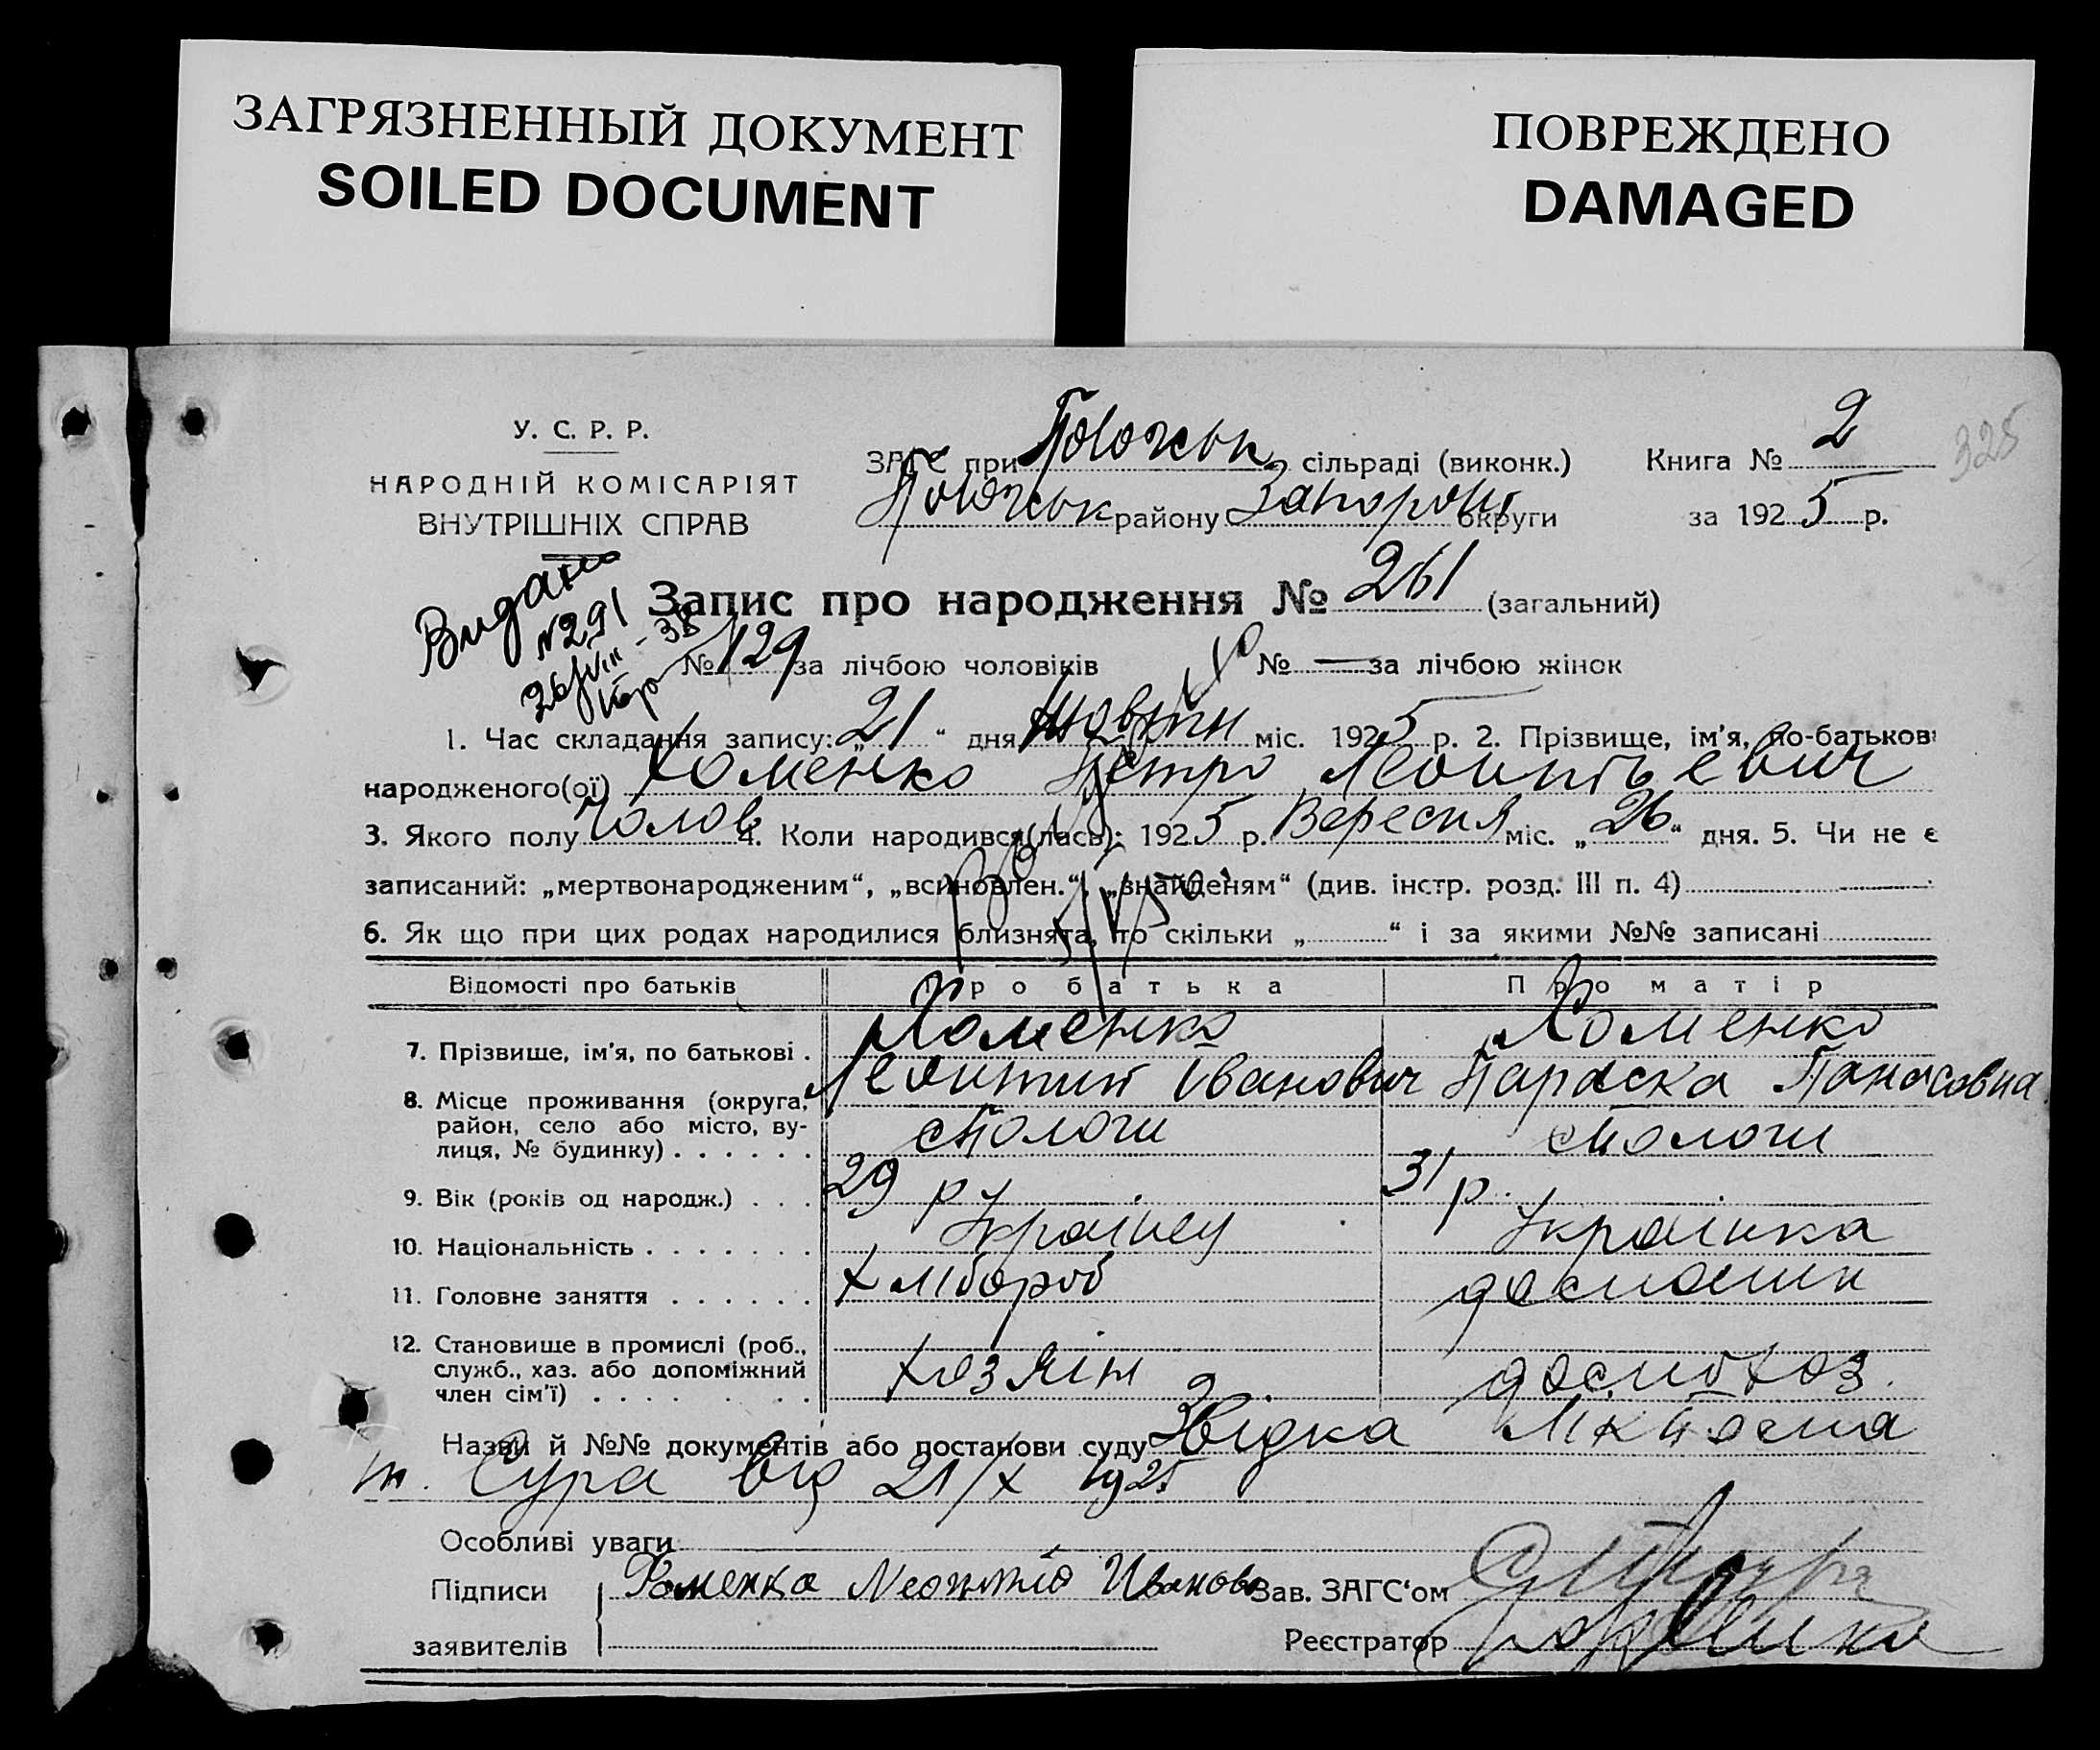 ЗАГРЯЗНЕННЫЙ ДОКУМЕНТ
SOILED DOCUMENT
ПОВРЕЖДЕНО
DAMAGED
У. С. Р. Р.
НАРОДНІЙ КОМІСАРІЯТ
ВНУТРІШНІХ СПРАВ
325
ЗАГС при Пологськ сільраді (виконк.) Книга № 2
Пологськ району Запоріш округи за 1925 р.
Видано
№291
Запис про народження № 261 (загальний)
№ 129 за лічбою чоловіків № — за лічбою жінок
1. Час складання запису: „21“ дня Жовтн міс. 1925 р. 2. Прізвище, ім'я, по-батькові
народженого(ої) Хоменко Петро Леонтьевич
3. Якого полу Чолов 4. Коли народився(лась): 1925 р. Вересня міс. „26“ дня. 5. Чи не є
записаний: „мертвонародженим“, „всиновлен.“, „знайденям“ (див. інстр. розд. III п. 4)
6. Як що при цих родах народилися близнята, то скільки „ “ і за якими №№ записані
Відомості про батьків Про батька Про матір
7. Прізвище, ім'я, по батькові . Хоменко Хоменко
Леонтий Іванович Параска Панасовна
8. Місце проживання (округа, район, село або місто, ву-
лиця, № будинку) . . . . . . сПологи сПологи
9. Вік (років од народж.) . . . 29 р 31 р.
10. Національність . . . . . . . Українец Українка
11. Головне заняття . . . . . . Хлібороб
12. Становище в промислі (роб.,
служб., хаз. або допоміжний
член сім'ї) . . . . . . . хозяін
Назви й №№ документів або постанови суду
від 21/X 1925
Особливі уваги
Підписи Хоменко Леонтій Иванов Зав. ЗАГС'ом
заявителів Реєстратор